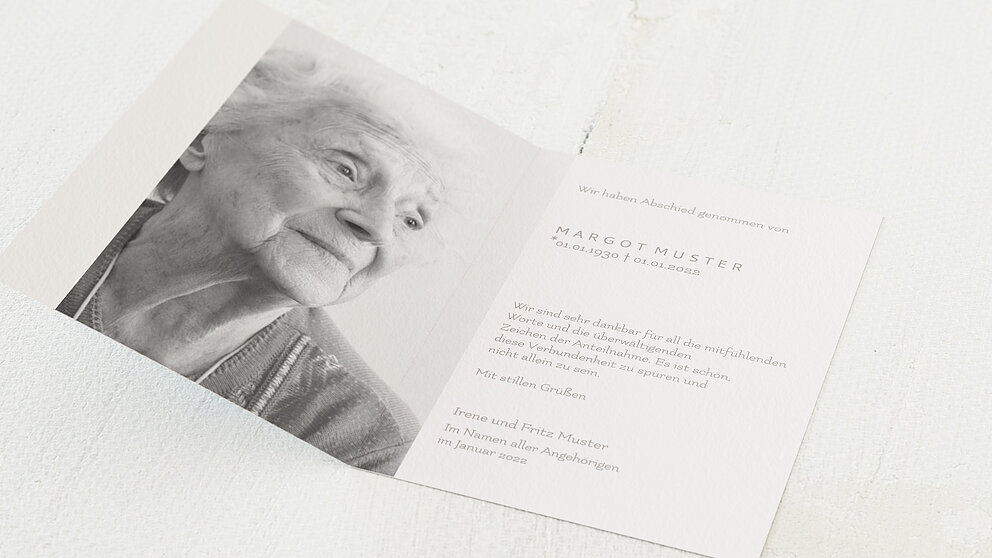 Wir haben Abschied genommen von
MARGOT MUSTER
*01.01.1930 † 01.01.2022
Wir sind sehr dankbar für all die mitfühlenden
Worte und die überwältigenden
Zeichen der Anteilnahme. Es ist schön,
diese Verbundenheit zu spüren und
nicht allein zu sein.
Mit stillen Grüßen
Irene und Fritz Muster
Im Namen aller Angehörigen
im Januar 2022